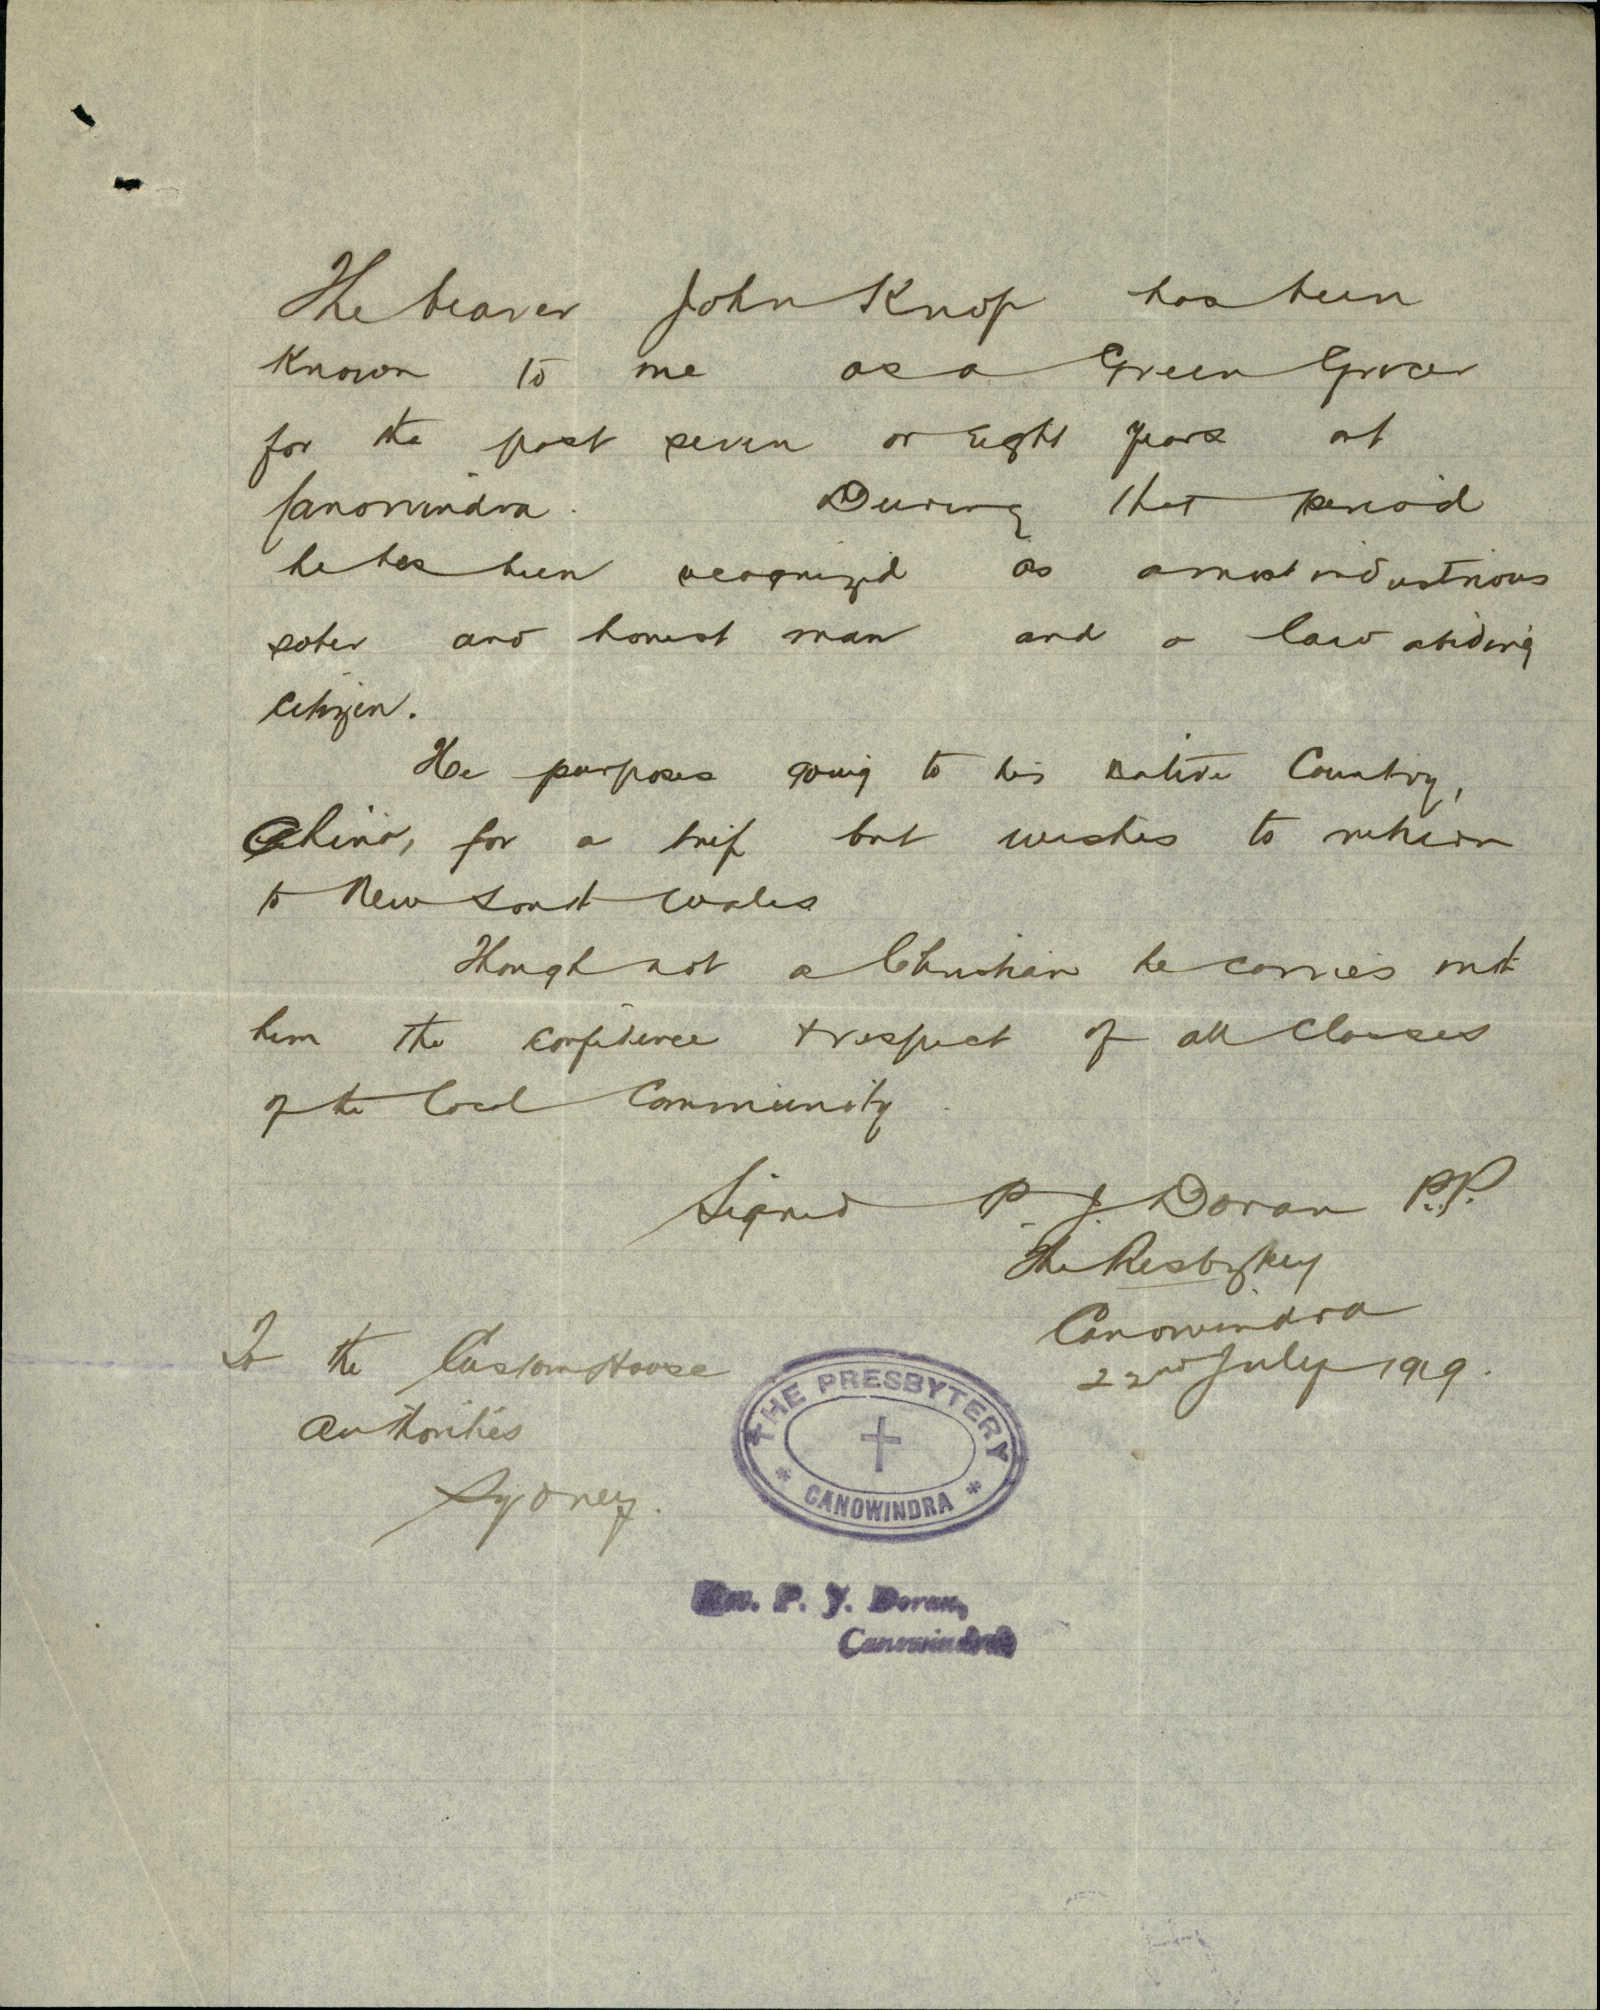 The bearer John Knop has been
known to me as a Green Grocer
for the past seven or eight years at
Canowindra. During that period
he has been recognized as a most industrious
sober and honest man and a law abiding
citizen.
He purposes going to his native Country,
China, for a trip but wishes to return
to New South Wales
Though not a Christian he carries with
him the confidence & respect of all classes
of the local Community.
Signed P. J. Doran P.P.
The Presbytery
Canowindra
22nd July 1919.
To the Custom House
Authorities
Sydney.
THE PRESBYTERY
* CANOWINDRA *
Rev. P. J. Doran,
Canowindra